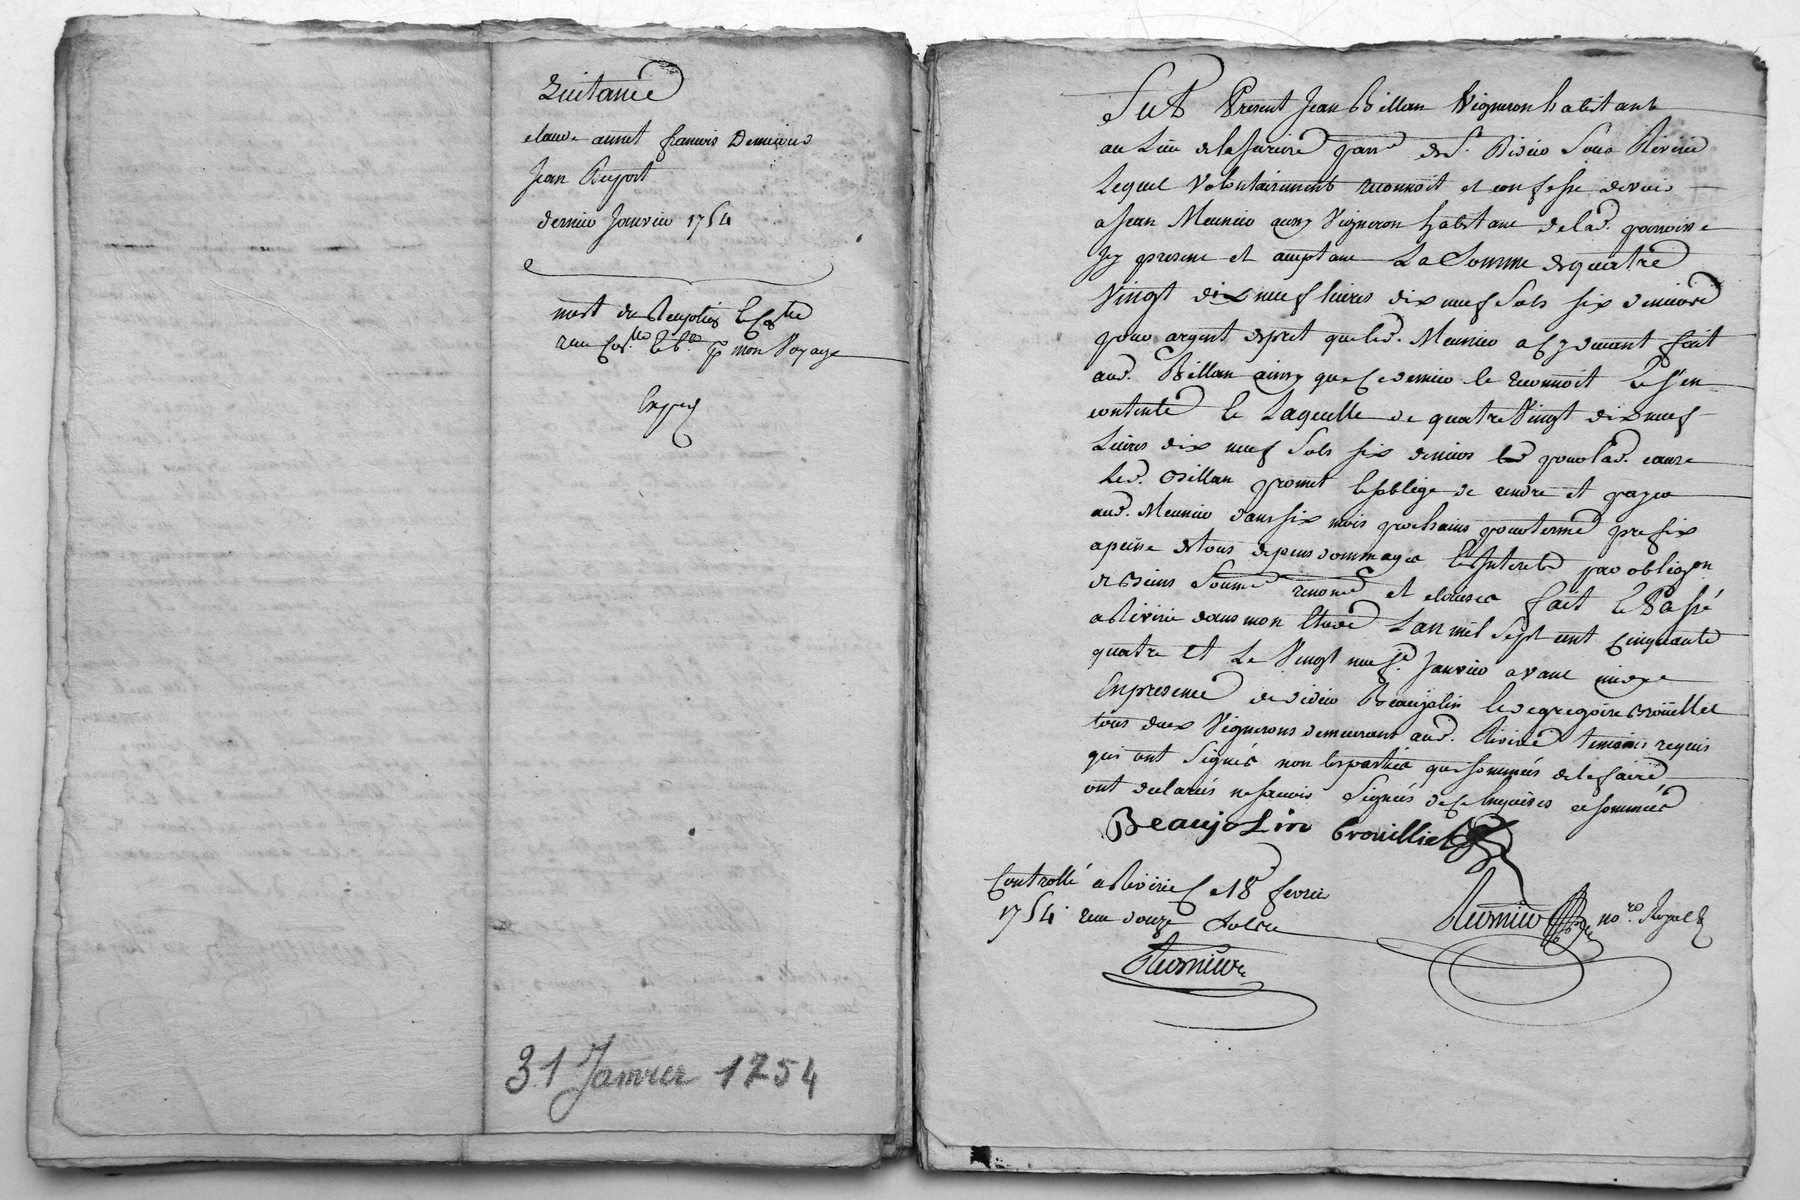 Quitance
claude annet francois Demieres
Jean Dupport
dernier Janvier 1754
mon Voyage
Exped
31 Janvier 1754
Fut Present Jean Billan Vigneron habitant
au Lieu de la parr.e de St. Didier Sous Riverie
Lequel Volontairement reconnoit et confesse devoir
a Jean Meunier aussy Vigneron habitant de lad. parroisse
Icy present et acceptant La Somme de quatre
Vingt dix neuf livres dix neuf Sols six deniers
pour argent de pret que led. Meunier a cy devant fait
aud. Billan ainsy que ce dernier le reconnoit et s'en
contente Laquelle de quatre Vingt dix neuf
Livres dix neuf Sols six deniers pour lad. cause
Led. Billan promet et s'oblige de rendre et payer
aud. Meunier dans six mois prochains pour terme prefix
a peine de tous depens dommages et Interets par obligaon
de Biens Soumis renonce et clauses fait et Passé
a Riverie dans mon Etude L'an mil Sept cent Cinquante
quatre et Le Vingt neuf.e Janvier avant midy
En presence de didier Beaujolin et de gregoire Brouillet
tous deux Vignerons demeurant aud. Riverie temoins requis
qui ont Signés non les parties que sommées de le faire
ont declarés ne scavoir Signer de ce Enquises et sommées
Beaujolin Brouilliet
Controllé a Riverie Ce 18 fevrier
1754 reçu douze Sols
no.re Royal